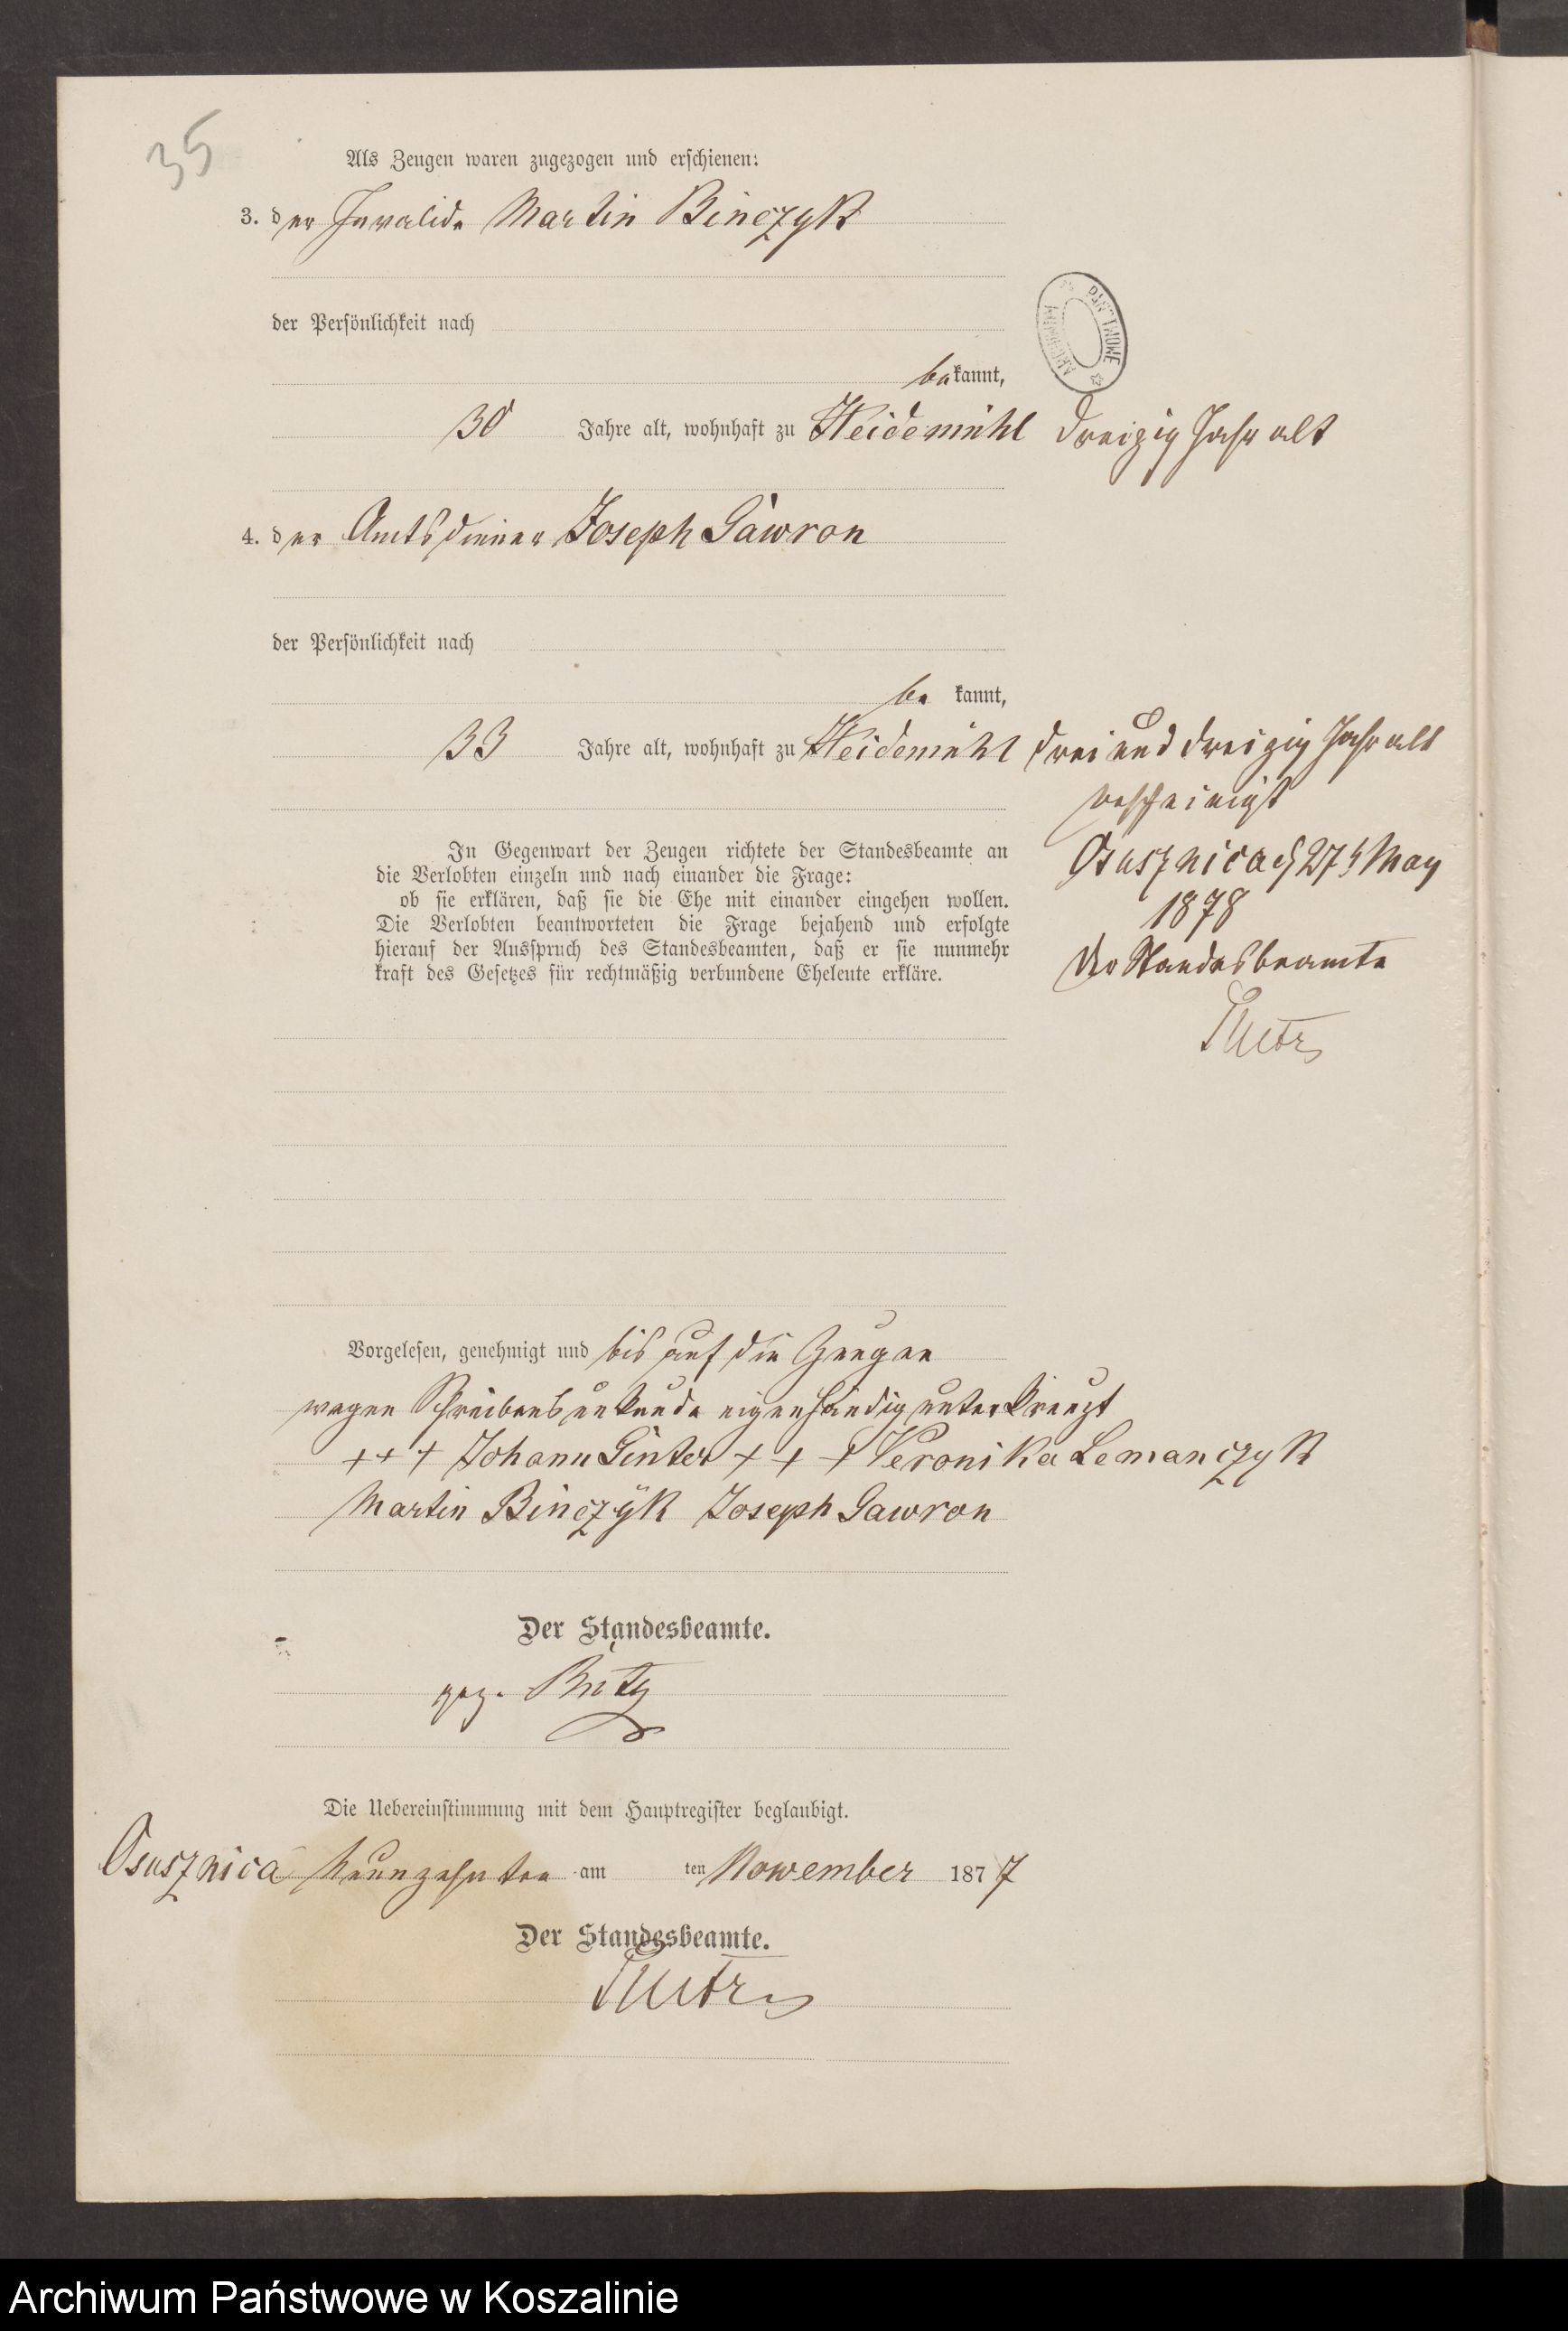 35
Als Zeugen waren zugezogen und erschienen:
3. der Invalide Martin Binczyk
der Persönlichkeit nach
bekannt,
30 Jahre alt, wohnhaft zu Heidemühl dreizig Jahr alt
4. der Amtsdiener Joseph Gawron
der Persönlichkeit nach
be kannt,
33 Jahre alt, wohnhaft zu Heidemühl drei und dreizig Jahr alt
bescheinigt
In Gegenwart der Zeugen richtete der Standesbeamte an
die Verlobten einzeln und nach einander die Frage:
ob sie erklären, daß sie die Ehe mit einander eingehen wollen.
Die Verlobten beantworteten die Frage bejahend und erfolgte
hierauf der Ausspruch des Standesbeamten, daß er sie nunmehr
kraft des Gesetzes für rechtmäßig verbundene Eheleute erkläre.
Osusznica d 27 t May
1878
Der Standesbeamte
Vorgelesen, genehmigt und bis auf die Zeugen
wegen Schreibensunkunde eigenhändig unterkreuzt
+++ Johann Ginter +++ Veronika Lemanczyk
Martin Binczÿk Joseph Gawron
Der Standesbeamte.
gez.
Die Uebereinstimmung mit dem Hauptregister beglaubigt.
Osusznica Neunzehnten am ten Nowember 1877
Der Standesbeamte.
ARCHIWUM PAŃSTWOWE
Archiwum Państwowe w Koszalinie